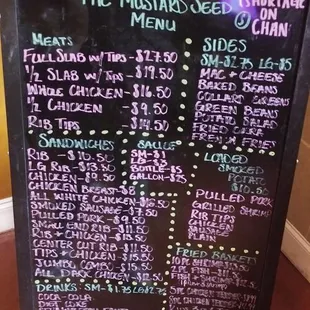 THE MUSTARD SEED
MENU
SHORTAGE
ON
CHAN
MEATS
FULL SLAB W/ TIPS - $27.50
1/2 SLAB W/ TIPS - $19.50
WHOLE CHICKEN - $16.50
1/2 CHICKEN - $9.50
RIB TIPS - $14.50
SIDES
SM-$2.75 LG-$5
MAC + CHEESE
BAKED BEANS
COLLARD GREENS
GREEN BEANS
POTATO SALAD
FRIED OKRA
FRENCH FRIES
SANDWICHES
RIB - $10.50
LG RIB - $13.50
CHICKEN - $9.50
CHICKEN BREAST - $8
ALL WHITE CHICKEN - $16.50
SMOKED SAUSAGE - $7.50
PULLED PORK - $9.50
SMALL END RIB - $11.50
RIB + CHICKEN - $15.50
CENTER CUT RIB - $11.50
TIPS + CHICKEN - $15.50
JUMBO COMBO - $15.50
ALL DARK CHICKEN - $12.50
SAUCE
SM-$1
BOTTLE-$5
GALLON-$75
LOADED
SMOKED
POTATO
$10.50
PULLED PORK
GRILLED SHRIMP
RIB TIPS
CHICKEN
SAUSAGE
PLAIN
FRIED BASKETS
DRINKS: SM-$1.75 LG-$2.75
COCA-COLA
DIET COKE